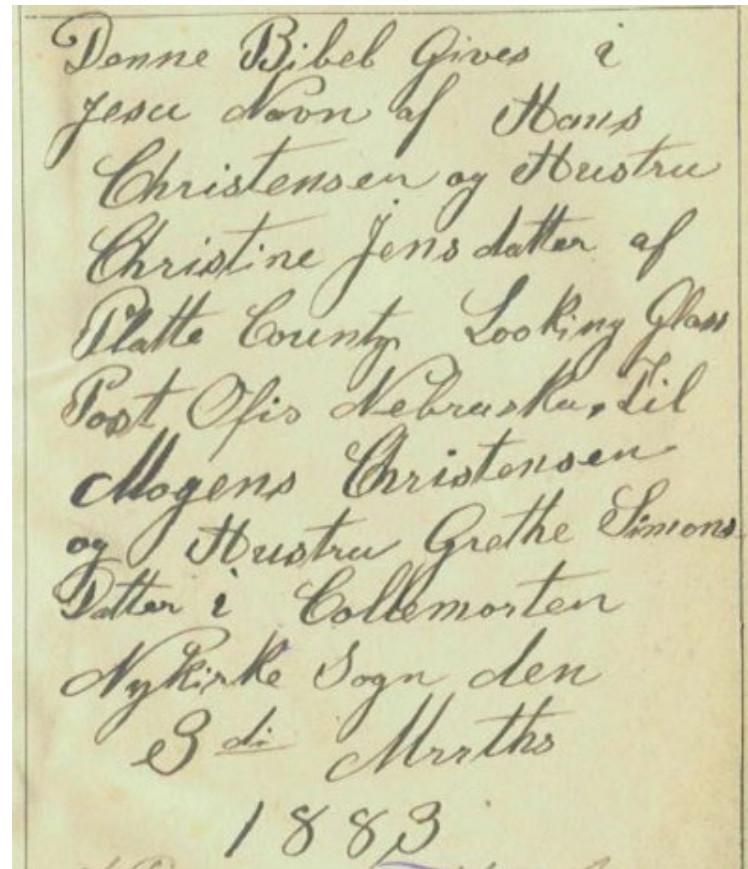 Denne Bibel Gives i
Jesu Navn af Hans
Christensen og Hustru
Christine Jensdatter af
Platte County Looking Glass
Post Ofis Nebraska, Til
Mogens Christensen
og Hustru Grethe Simons
Datter i Collemorten
Nykirke Sogn den
3 di
1883